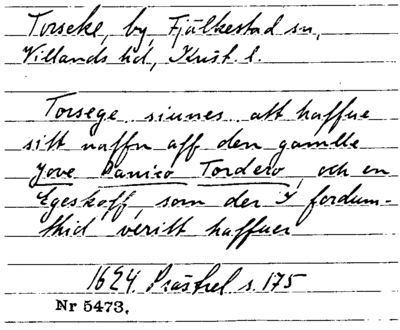 Torseke, by, Fjälkestad sn,
Villands hd, Krist. l.
Torsege siunes att haffue
sitt naffn aff den gamlle
Jove Danico Tordero, och en
Egeskoff, som der I fordum-
thid veritt haffuer
1624. Prästrel s. 175
Nr 5473.